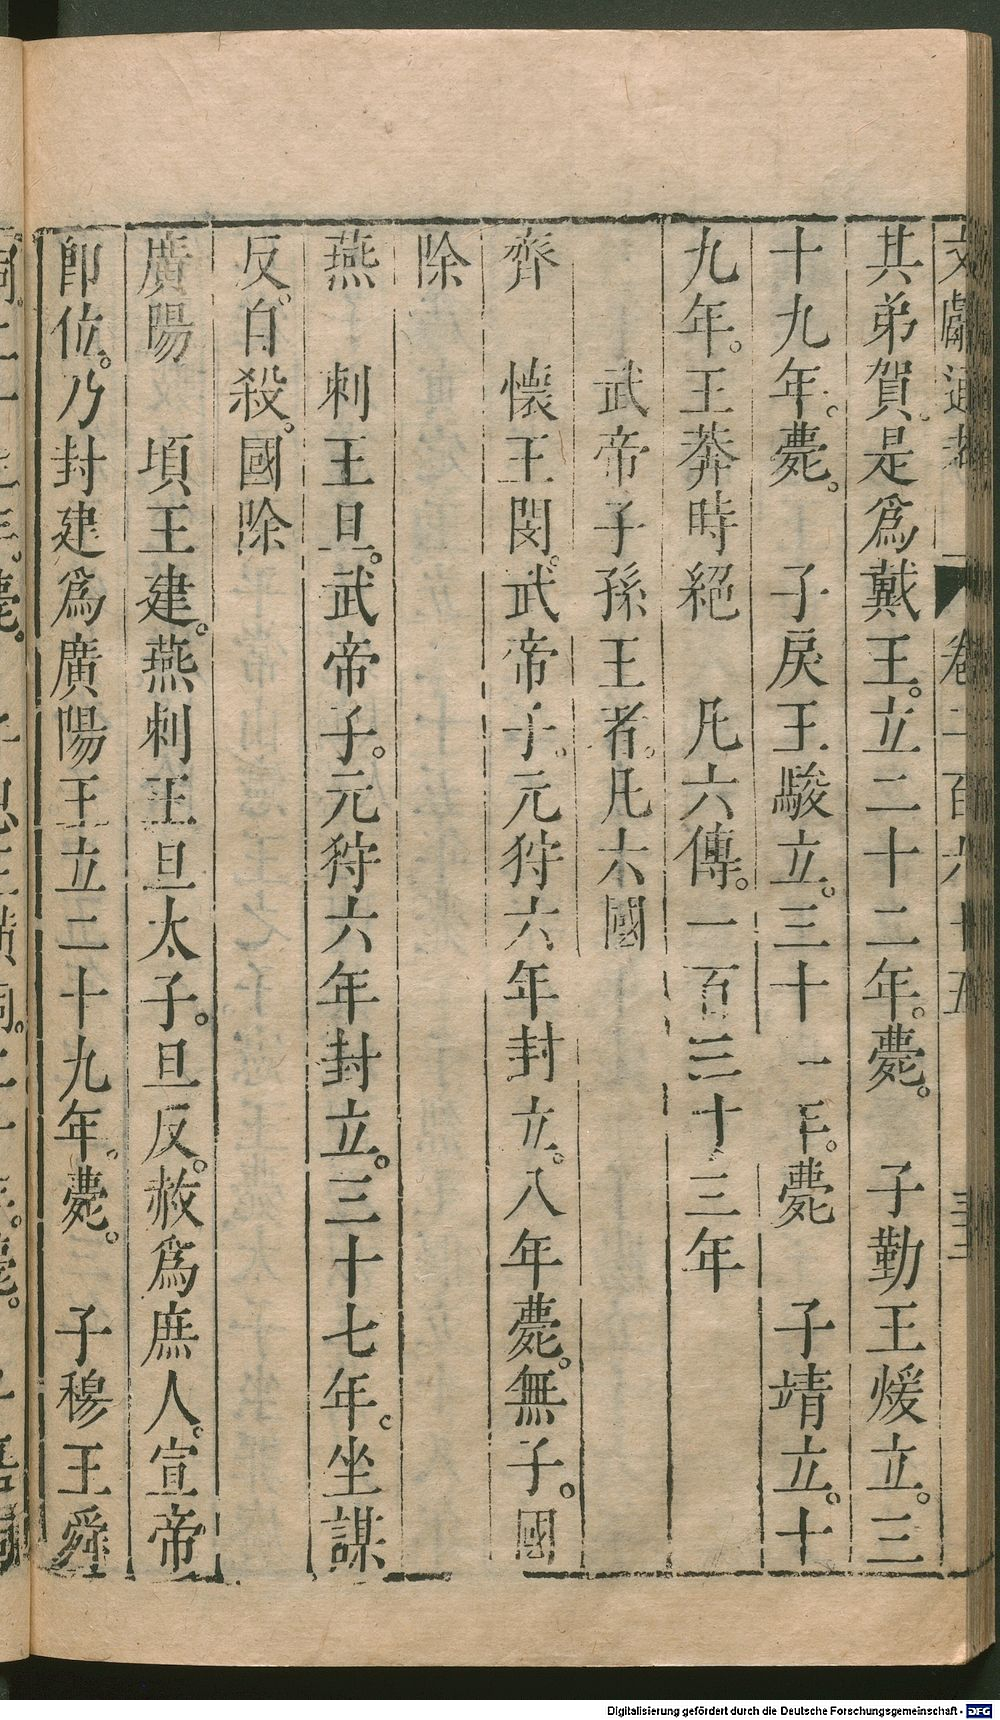 文獻通考 卷二百六十五
其弟賀。是爲戴王。立二十二年。薨。 子勤王煖立。三
十九年。薨。 子戾王駿立。三十一年。薨 子靖立。十
九年。王莽時絕 凡六傳。一百三十三年
武帝子孫王者。凡六國
齊 懷王閎。武帝子。元狩六年封立。八年薨。無子。國
除
燕 刺王旦。武帝子。元狩六年封立。三十七年。坐謀
反。自殺。國除
廣陽 頃王建。燕刺王旦太子。旦反。赦爲庶人。宣帝
卽位。乃封建爲廣陽王立二十九年。薨。 子穆王舜
Digitalisierung gefördert durch die Deutsche Forschungsgemeinschaft - DFG